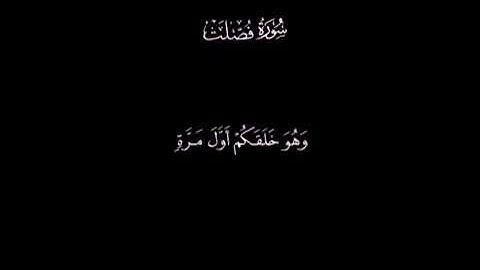 سُورَةُ فُصِّلَتْ
وَهُوَ خَلَقَكُمْ أَوَّلَ مَرَّةٍ